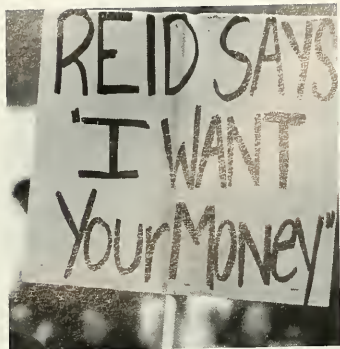 REID SAYS
"I WANT
YOUr MONEY"